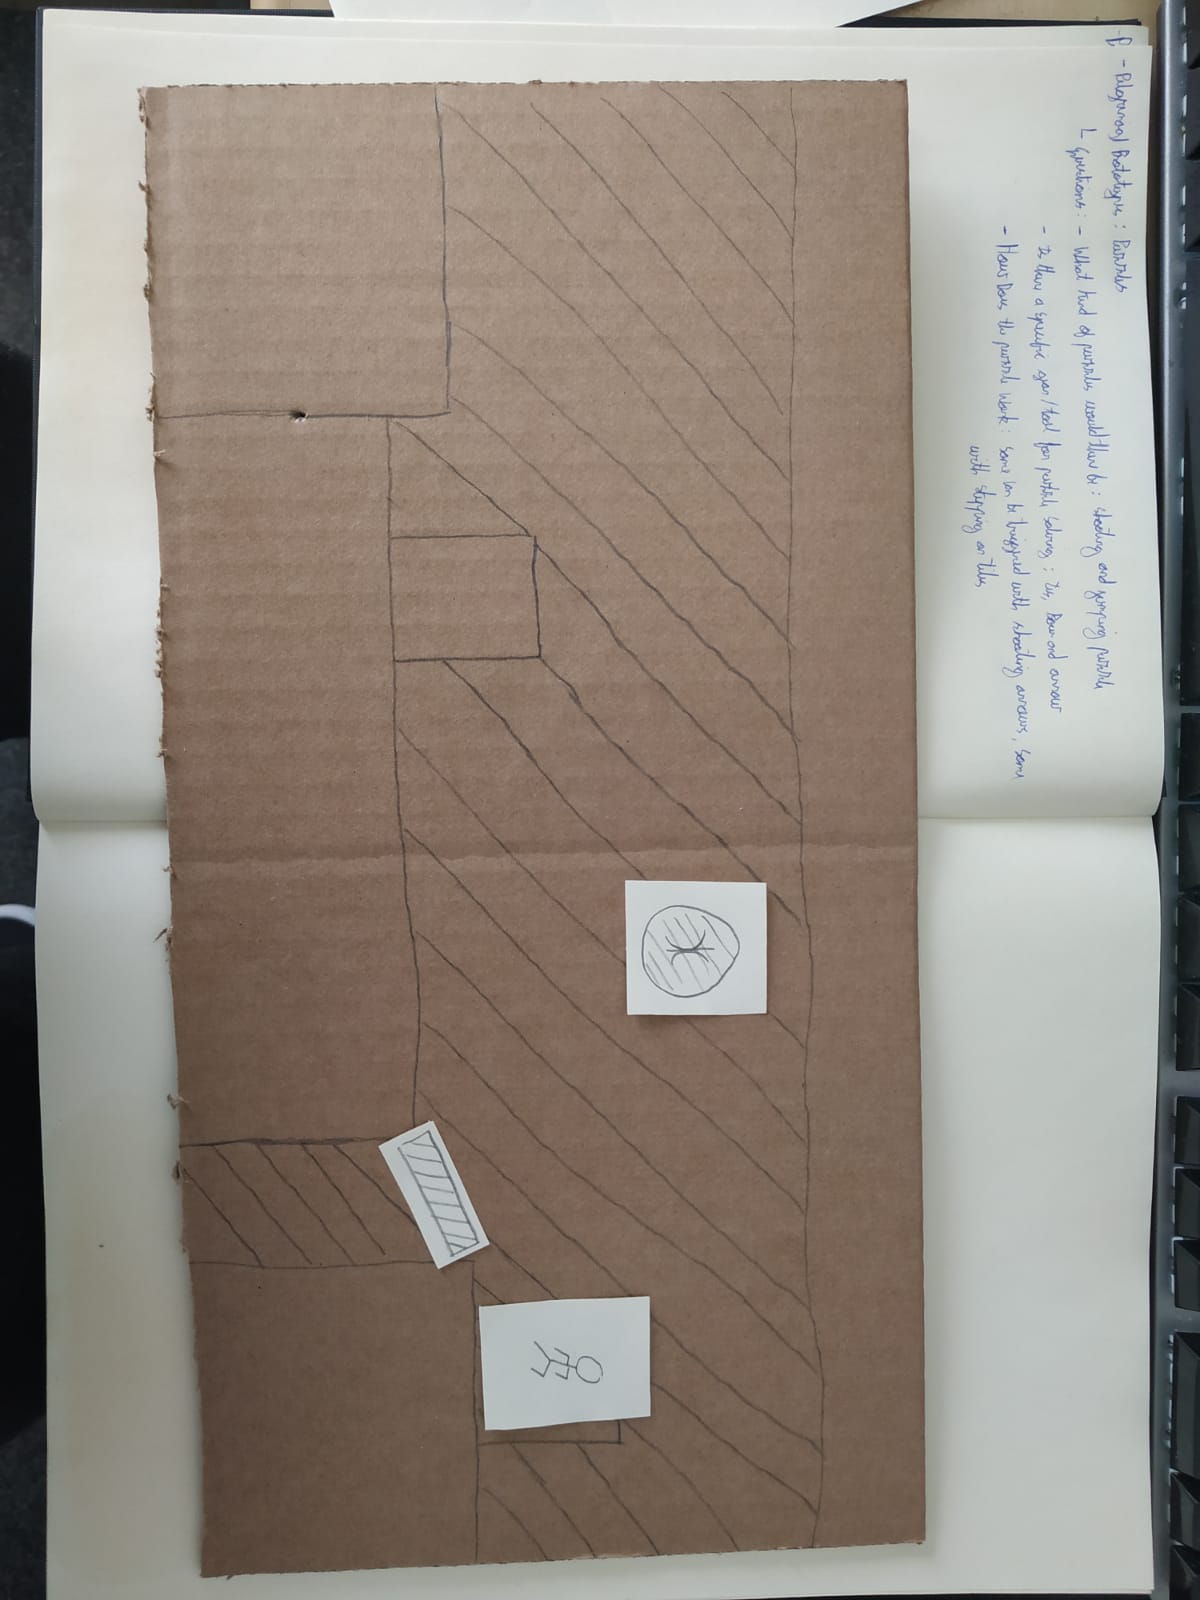 - Pilgrimage Prototypes: Puzzles
Questions: - What kind of puzzles would there be: shooting and jumping puzzle
- Is there a specific gear/tool for puzzle solving: Yes, Bow and arrow
- How Does the puzzle work: some can be triggered with shooting arrows, some
with stepping on tiles